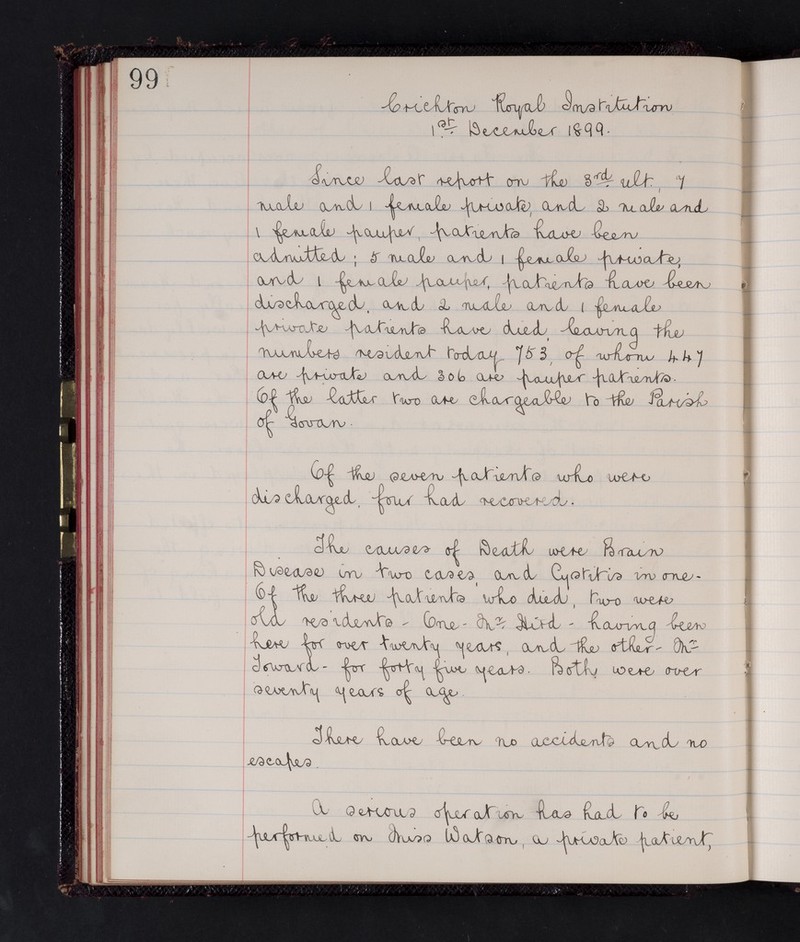 99
Crichton Royal Institution
1st December 1899.
Since last report on the 3rd ult., 7
male and 1 female private, and 2 male and
1 female pauper, patients have been
admitted; 5 male and 1 female private,
and 1 female pauper, patients have been
discharged, and 2 male and 1 female
private patients have died, leaving the
numbers resident today 753, of whom 447
are private and 306 are pauper patients.
Of the latter two are chargeable to the Parish
of Govan.
Of the seven patients who were
discharged, four had recovered.
The causes of Death were Brain
Disease in two cases, and Cystitis in one.
Of the three patients who died, two were
old residents - One - Mr - having been
here for over twenty years, and the other - Mr
- for forty five years. Both were over
seventy years of age.
There have been no accidents and no
escapes.
A serious operation has had to be
performed on Miss Watson, a private patient,